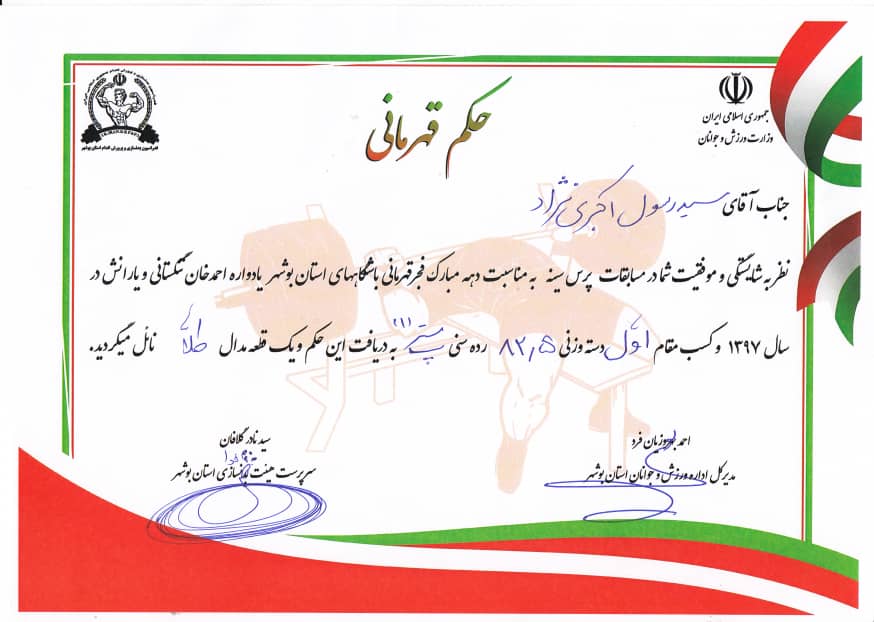 حکم قهرمانی
جمهوری اسلامی ایران
وزارت ورزش و جوانان
فدراسیون بدنسازی و پرورش اندام استان بوشهر
جناب آقای سیدرسول اکبری نژاد
نظر به شایستگی و موفقیت شما در مسابقات پرس سینه به مناسبت دهه مبارک فجر قهرمانی باشگاههای استان بوشهر یادواره احمدخان تنگستانی و یارانش در
سال ۱۳۹۷ و کسب مقام اول دسته وزنی ۸۲٫۵ رده سنی پیشکسوت به دریافت این حکم و یک قطعه مدال طلا نائل میگردید.
سید نادر گلافان
سرپرست هیئت بدنسازی استان بوشهر
احمد فرد
مدیرکل اداره ورزش و جوانان استان بوشهر